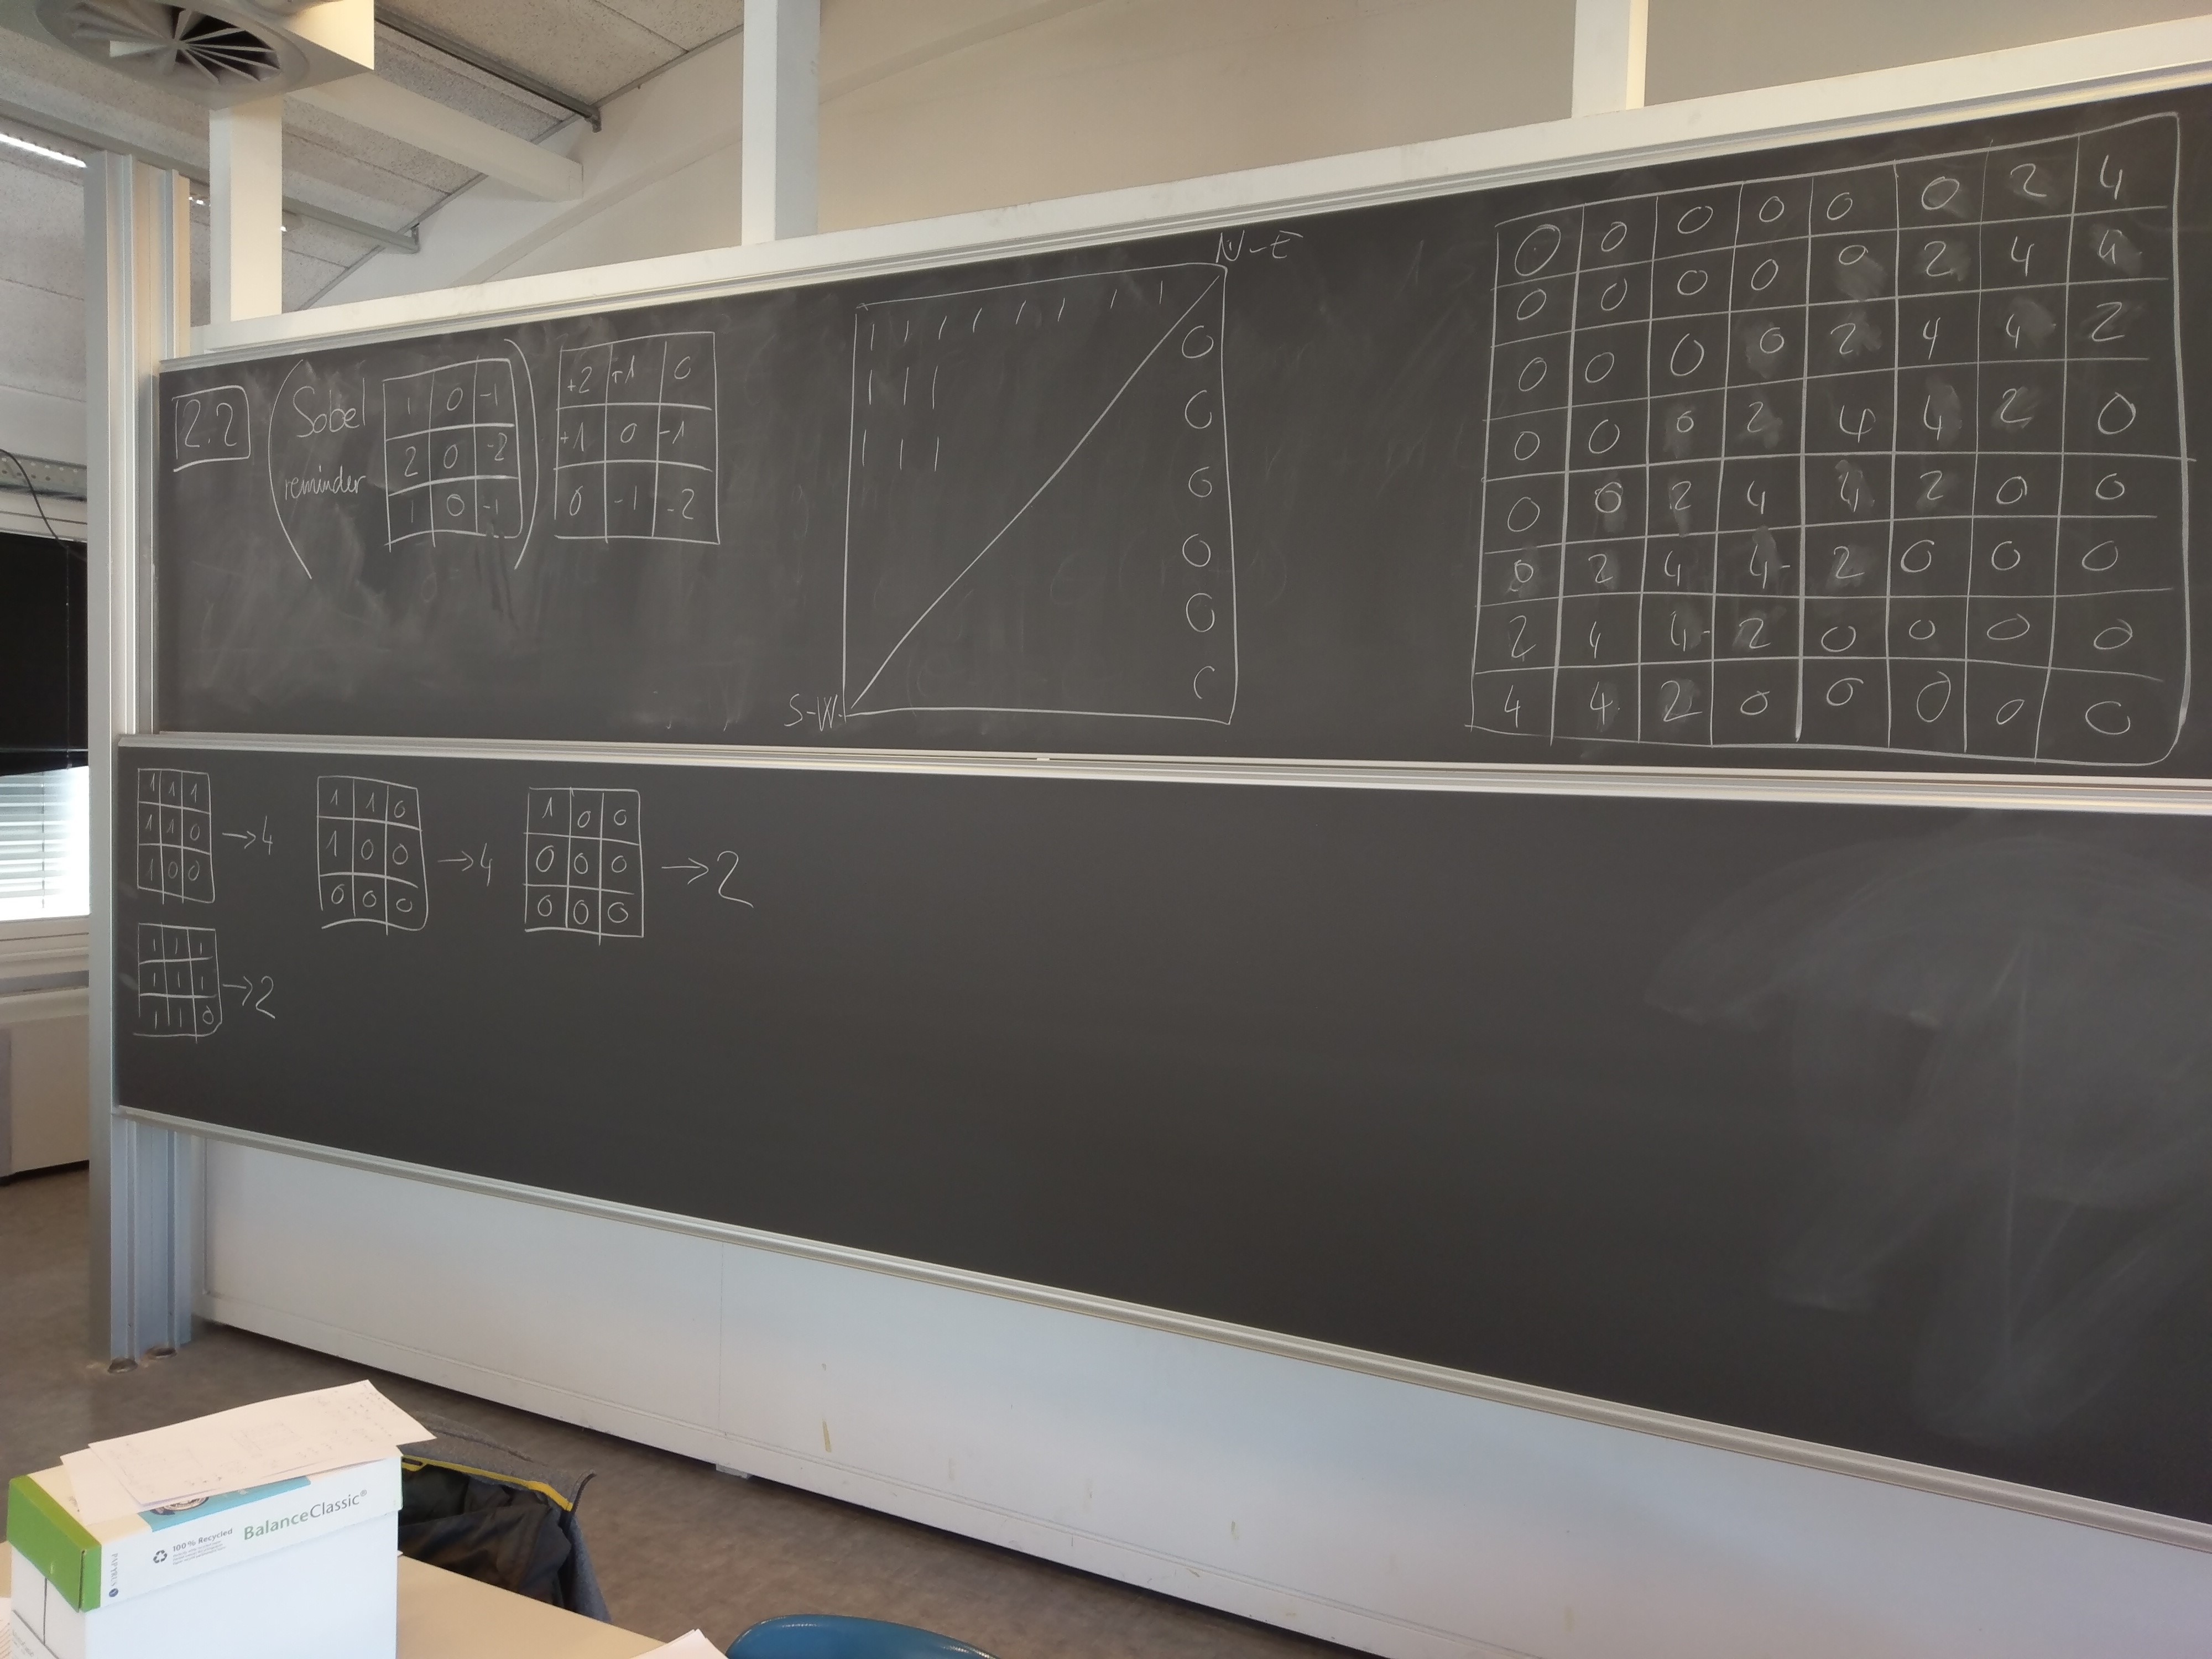 2.2
Sobel
reminder
1 0 -1
2 0 -2
1 0 -1
+2 +1 0
+1 0 -1
0 -1 -2
N-E
1 1 1 1 1 1 1 1
1 1 1
1 1 1
0
0
0
0
0
S-W
0 0 0 0 0 0 2 4
0 0 0 0 0 2 4 4
0 0 0 0 2 4 4 2
0 0 0 2 4 4 2 0
0 0 2 4 4 2 0 0
0 2 4 4 2 0 0 0
2 4 4 2 0 0 0 0
4 4 2 0 0 0 0 0
1 1 1
1 1 0 →4
1 0 0
1 1 0
1 0 0 →4
0 0 0
1 0 0
0 0 0 →2
0 0 0
1 1 1
1 1 1 →2
1 1 0
100% Recycled
BalanceClassic®